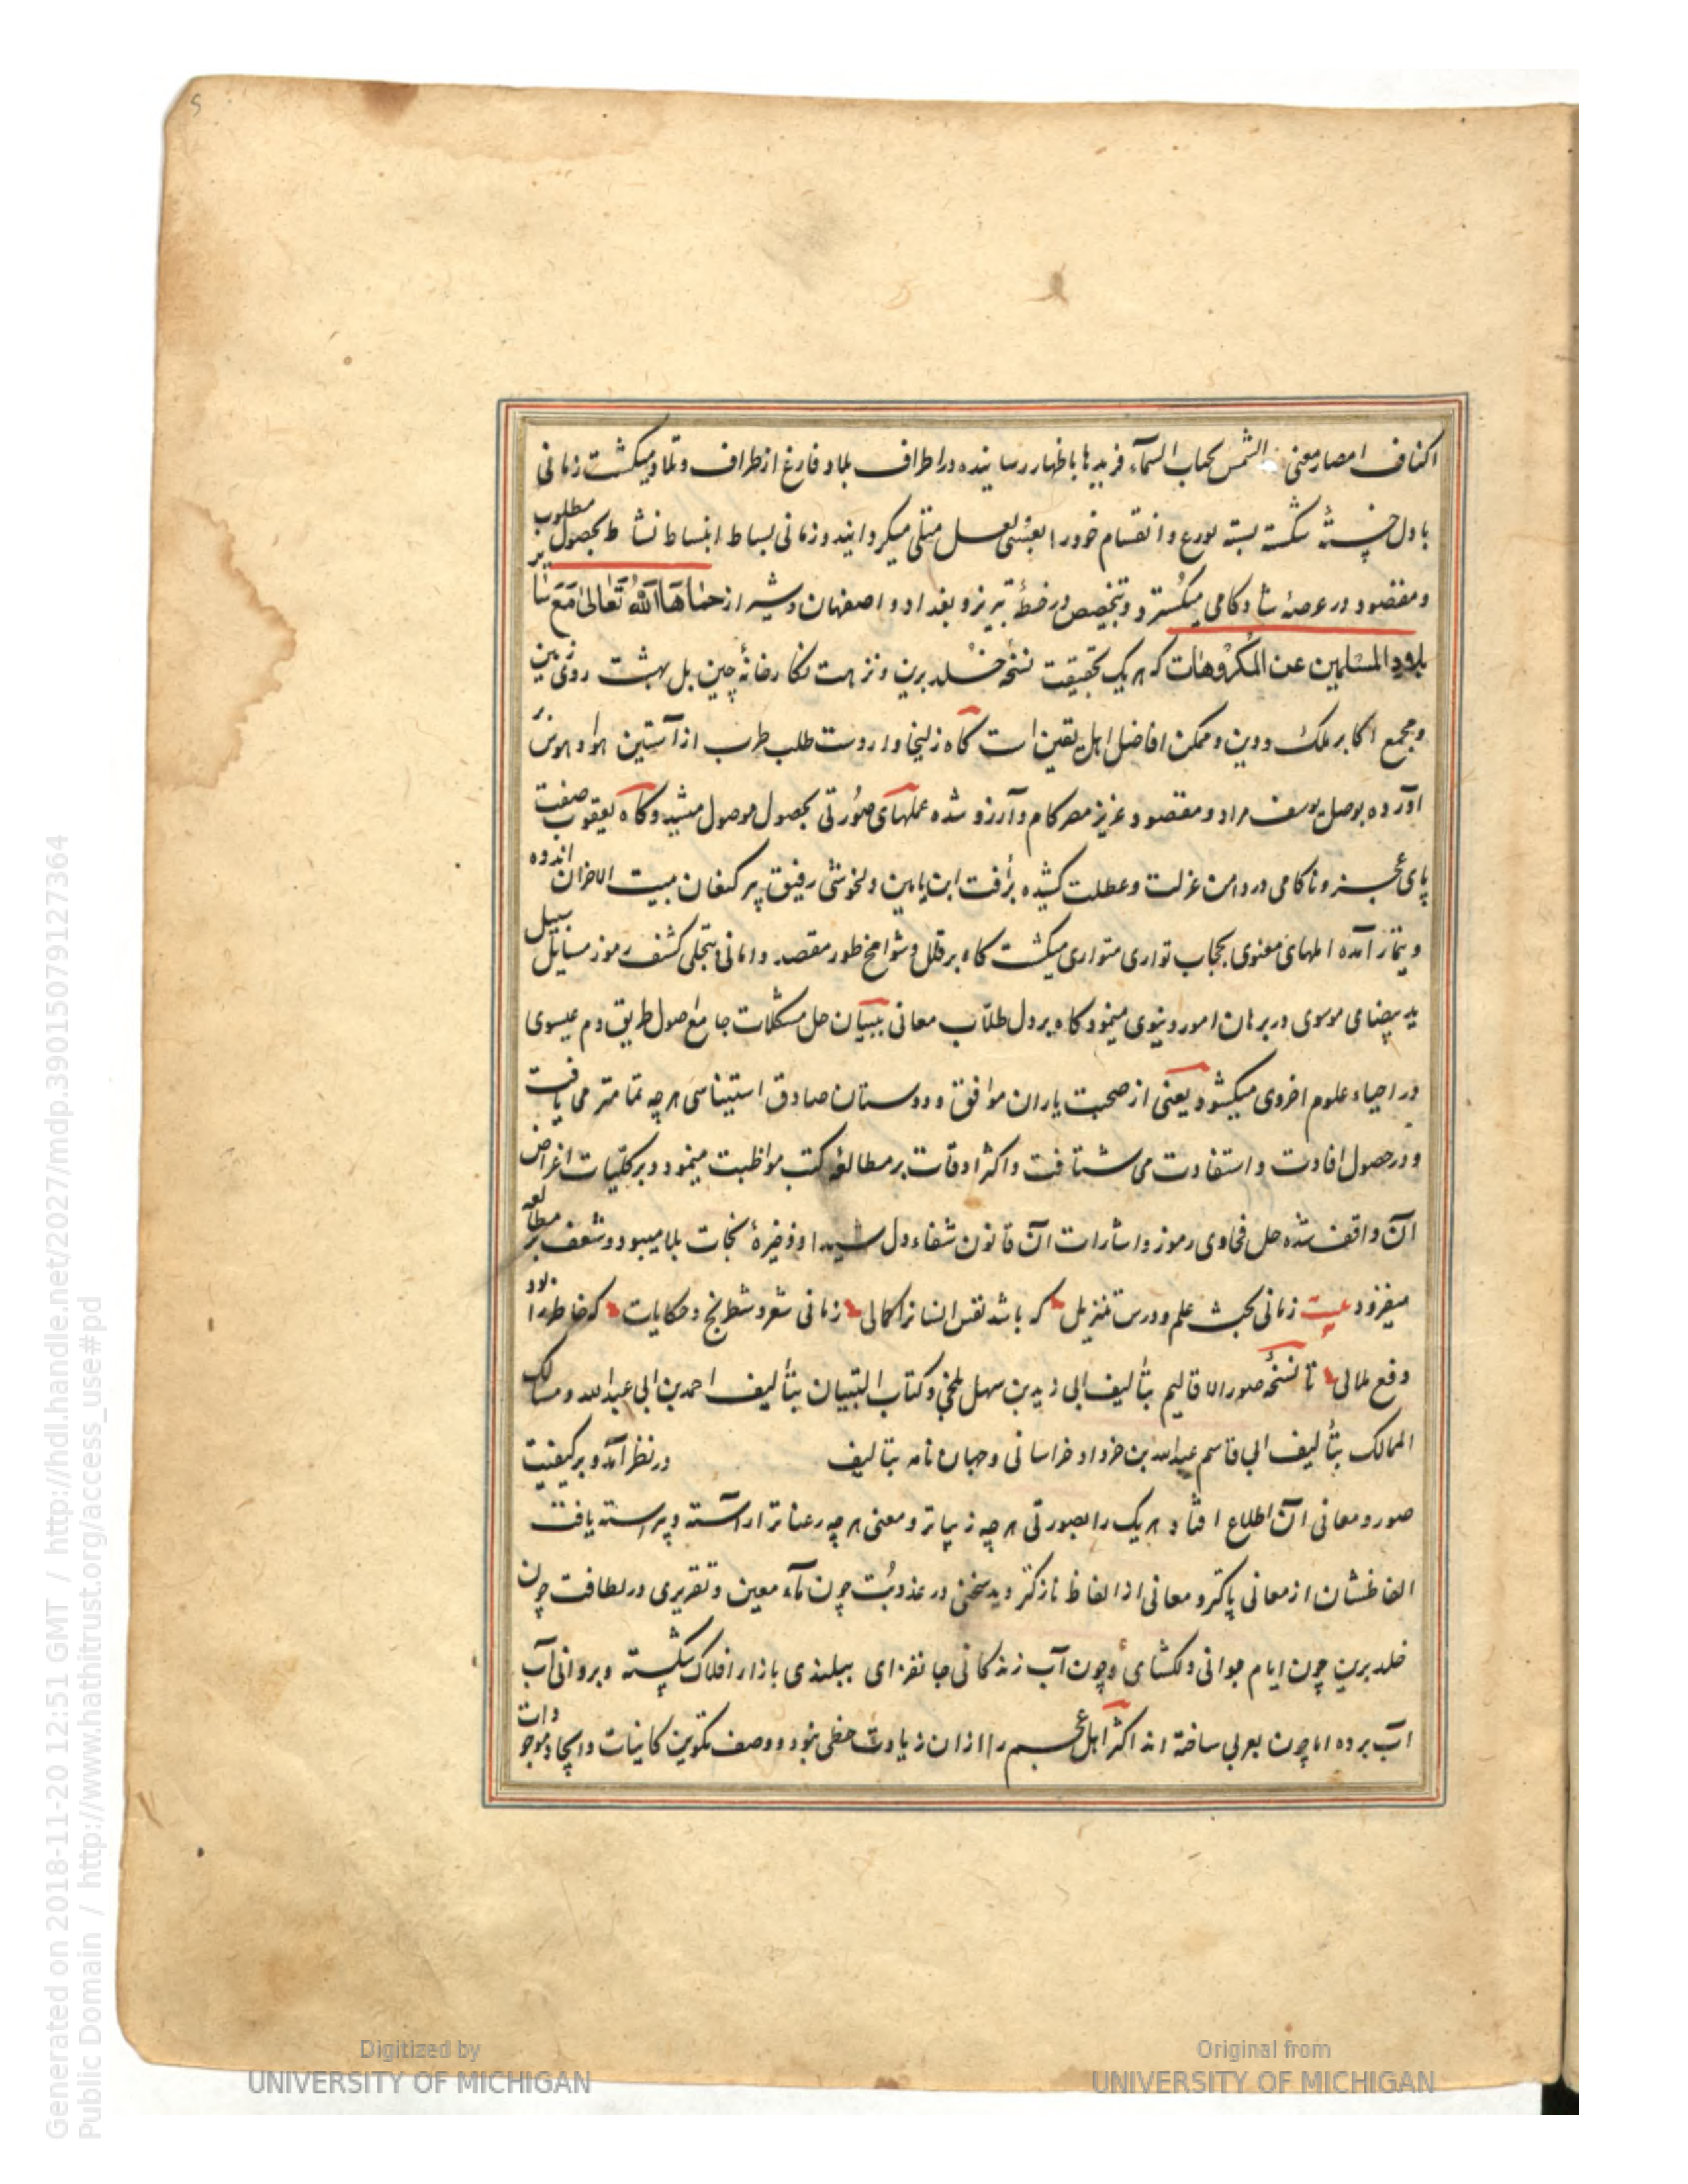 5
اکناف امصار معنی الشمس السماء فریدها باظهار رسانیده در اطراف بلاد فارغ از طراف و تلاد میکشت زمانی
با دل خستهٔ شکسته بسته توزع و انقسام خود را بعسی و لعل متلی میکردانید و زمانی بساط انبساط نشاط بحصول مطلوب
و مقصود در عرصهٔ شادکامی میکسترد و بتخصیص در خطهٔ تبریز و بغداد و اصفهان و شیراز حماها الله تعالی مع سایر
بلاد المسلمین عن المکروهات که هر یک بحقیقت نسخهٔ خلد برین و نزهت نکارخانهٔ چین بل بهشت روی زمین
و مجمع اکابر ملک و دین و ممکن افاضل اهل یقین است کاه زلیخا وار دست طلب طرب از آستین هوا و هوس بر
آورده بوصل یوسف مراد و مقصود و عزیز مصر کام و آرزو شده عملهای صورتی بحصول موصول میشد و کاه یعقوب صفت
پای عجز و ناکامی در دامن عزلت و عطلت کشیده برأفت ابن یامین دلخوشی رفیق پیر کنعان بیت الاحزان اندوه
و تیمار آمده املهای معنوی بحجاب تواری متواری میکشت کاه بر قلل و شوامخ طور مقصد و امانی بتجلی کشف رموز مسایل سبیل
ید بیضای موسوی در برهان امور دنیوی مینمود و کاه بر دل طلاب معانی ببیان حل مشکلات جامع اصول طریق دم عیسوی
در احیاء علوم اخروی میکشود یعنی از صحبت یاران موافق و دوستان صادق استیناسی هرچه تمامتر می یافت
و در حصول افادت و استفادت می شتافت و اکثر اوقات بر مطالعه کتب مواظبت مینمود و بر کلیات اغراض
آن واقف شده حل فحاوی رموز و اشارات آن قانون شفاء دل شیدا و ذخیرهٔ نجات بلا میبود و شعف بر مطالعه
میفزود بیت زمانی بحث علم و درس تنزیل که باشد نفس انسانرا کمالی زمانی شعر و شطرنج و حکایات که خاطر را بود
دفع ملالی تا نسخهٔ صور الاقالیم بتألیف ابی زید بن سهل بلخی و کتاب التبیان بتألیف احمد بن ابی عبدالله و مسالک
الممالک بتألیف ابی قاسم عبدالله بن خرداد خراسانی و جهان نامه بتالیف در نظر آمد و بر کیفیت
صور و معانی آن اطلاع افتاد هر یک را بصورتی هرچه زیباتر و معنی هرچه رعناتر آراسته و پیراسته یافت
الفاظشان از معانی پاکتر و معانی از الفاظ نازکتر دید سخنی در عذوبت چون مآء معین و تقریری در لطافت چون
خلد برین چون ایام جوانی دلکشای و چون آب زندکانی جانفزای ببلندی بازار افلاک شکسته و بروانی آب
آب برده اما چون بعربی ساخته اند اکثر اهل عجم را از آن زیادت حظی نبود و وصف تکوین کاینات و ایجاد موجودات
Generated on 2018-11-20 12:51 GMT / http://hdl.handle.net/2027/mdp.39015079127364
Public Domain / http://www.hathitrust.org/access_use#pd
Digitized by
UNIVERSITY OF MICHIGAN
Original from
UNIVERSITY OF MICHIGAN